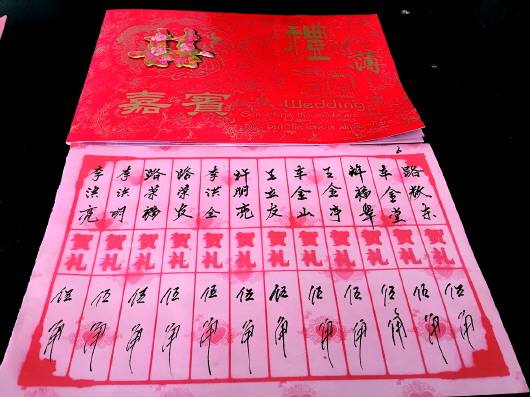 囍
禮
嘉賓
Wedding
路敬东 贺礼 伍角
车金堂 贺礼 伍角
许福翠 贺礼 伍角
王金亭 贺礼 伍角
车金山 贺礼 伍角
王立友 贺礼 伍角
许朋亮 贺礼 伍角
李洪全 贺礼 伍角
路荣友 贺礼 伍角
路荣福 贺礼 伍角
李洪明 贺礼 伍角
李洪亮 贺礼 伍角